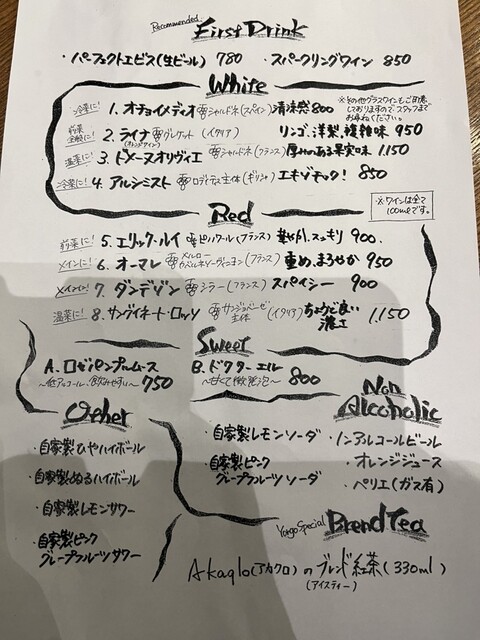 Recommended
First Drink
・パーフェクトエビス(生ビール) 780 ・スパークリングワイン 850
White
冷菜に! 1. オチョイメディオ シャルドネ(スペイン) 清涼感 800
※その他グラスワインもご用意しておりますので、スタッフまでお尋ねください。
前菜全般に! 2. ライナ(オレンジワイン) グレケット (イタリア) リンゴ、洋梨、複雑味 950
温菜に! 3. ドメーヌオリヴィエ シャルドネ(フランス) 厚みのある果実味 1.150
冷菜に! 4. アルシミスト ロディティス主体(ギリシャ) エキゾチック! 850
Red
※ワインは全て100mlです。
前菜に! 5. エリック・ルイ ピノノワール(フランス) 華やか、スッキリ 900.
メインに! 6. オーマレ メルロー カベルネソーヴィニヨン(フランス) 重め、まろやか 950
メインに! 7. ダンデゾン シラー(フランス) スパイシー 900
温菜に! 8. サングイネート・ロッソ サンジョベーゼ主体 (イタリア) ちょうど良い濃さ 1.150
Sweet
A. ロゼ 750
〜低アルコール、飲みやすい〜
B. ドクターエル 800
〜甘くて微発泡〜
Other
・自家製ひやハイボール
・自家製ぬるハイボール
・自家製レモンサワー
・自家製ピンクグレープフルーツサワー
Non Alcoholic
・自家製レモンソーダ
・自家製ピンクグレープフルーツソーダ
・ノンアルコールビール
・オレンジジュース
・ペリエ(ガス有)
Yorgo Special Brend Tea
Akaglo(アカクロ)のブレンド紅茶(330ml)
(アイスティー)